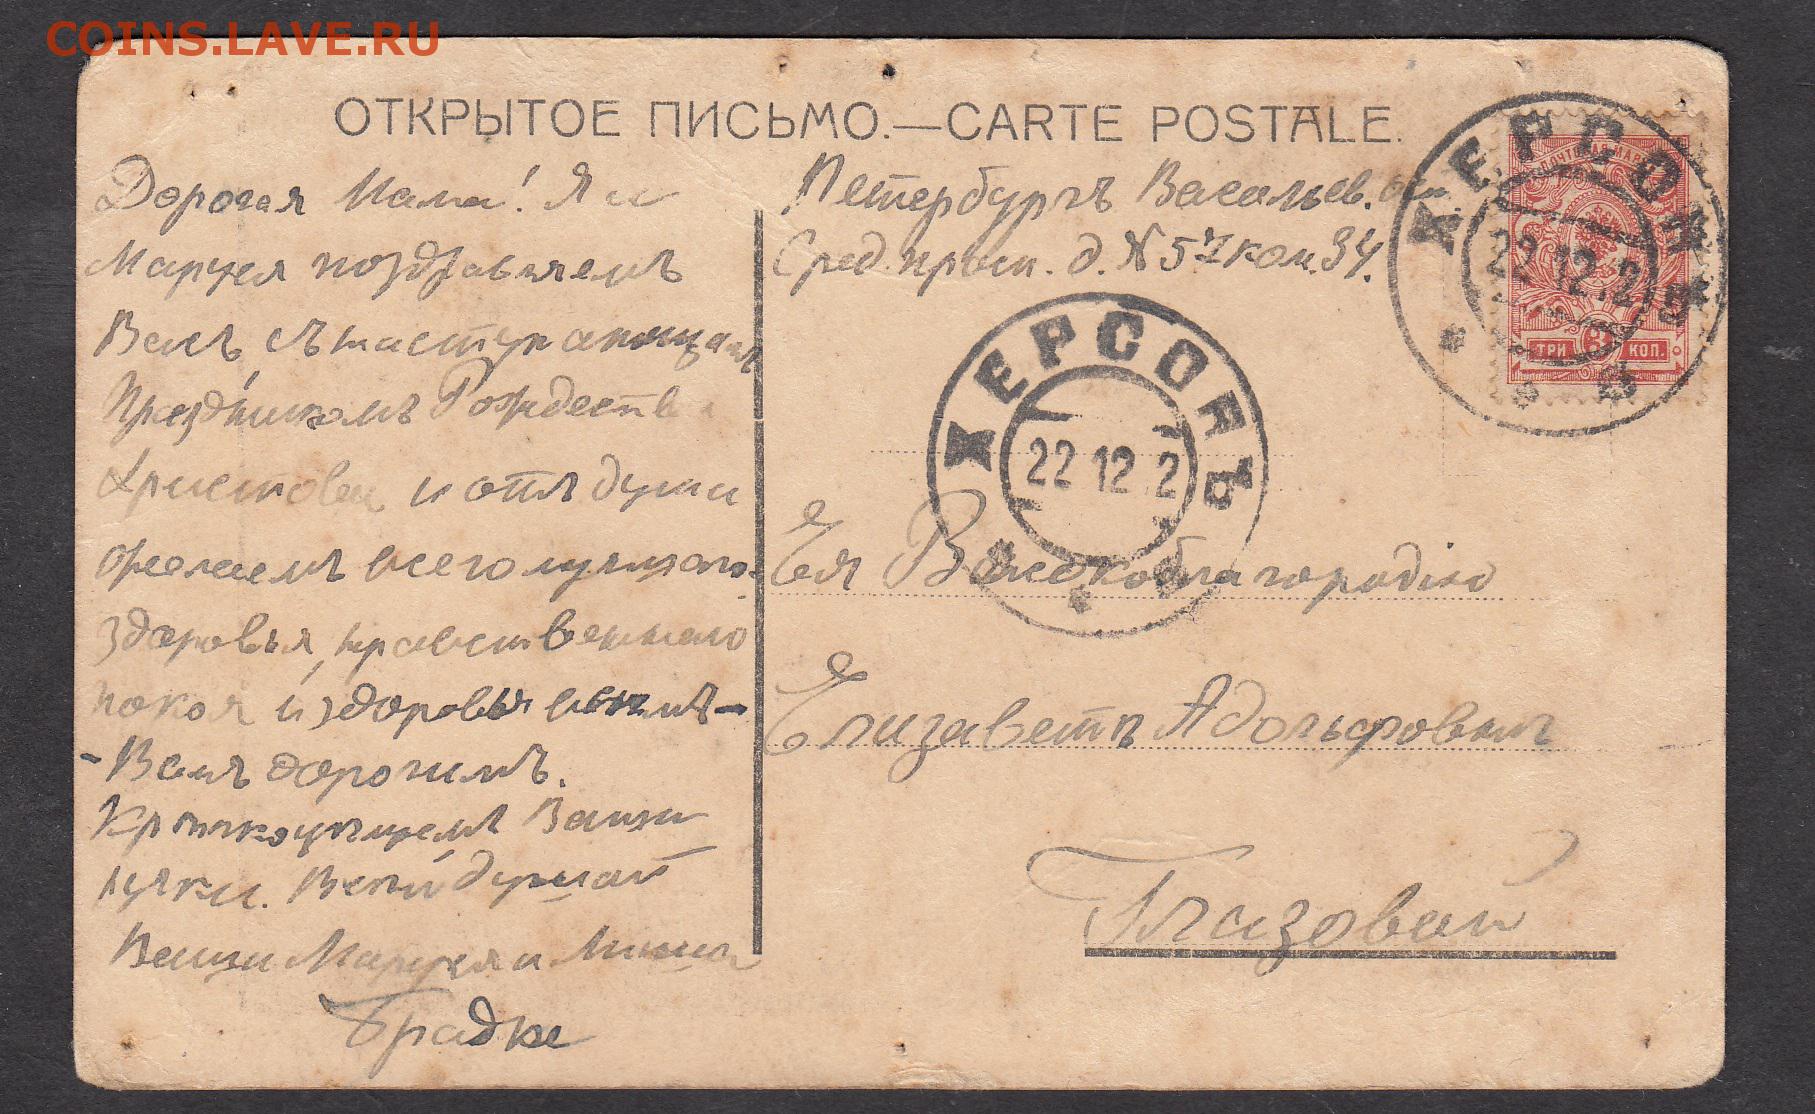 COINS.LAVE.RU
ОТКРЫТОЕ ПИСЬМО.—CARTE POSTALE.
Дорогая Мама! Я и
Маруся поздравляемъ
Васъ съ наступающимъ
Праздникомъ Рождества
Христова и отъ души
желаемъ всего лучшаго:
здоровья, нравственнаго
покоя и здоровья всѣмъ-
-Вамъ дорогимъ.
Крѣпко цѣлуемъ Ваши
ручки. Всей душой
Ваши Маруся и Миша
Брадке
Петербургъ Васильев. ост.
Сред. просп. д. № 57 ком. 34.
Ея Высокоблагородію
Елизаветѣ Адольфовнѣ
Глазовой
ХЕРСОНЪ
22 12 2
ХЕРСОНЪ
22 12 2
ПОЧТОВАЯ МАРКА
ТРИ 3 КОП.